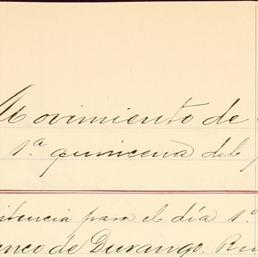 Movimiento de
1.ª quincena del
istencia para el día 1.º
anco de Durango.